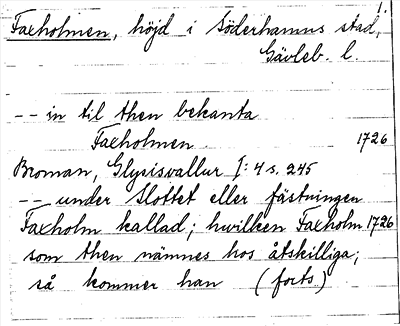 1.
Faxholmen, höjd i Söderhamns stad,
Gävleb. l.
-- in til then bekanta
Faxholmen 1726
Broman, Glysisvallur I: 4 s. 245
-- under Slottet eller fästningen
Faxholm kallad; hwilken Faxholm 1726
som then nämnes hos åtskilliga;
så kommer han (forts.)